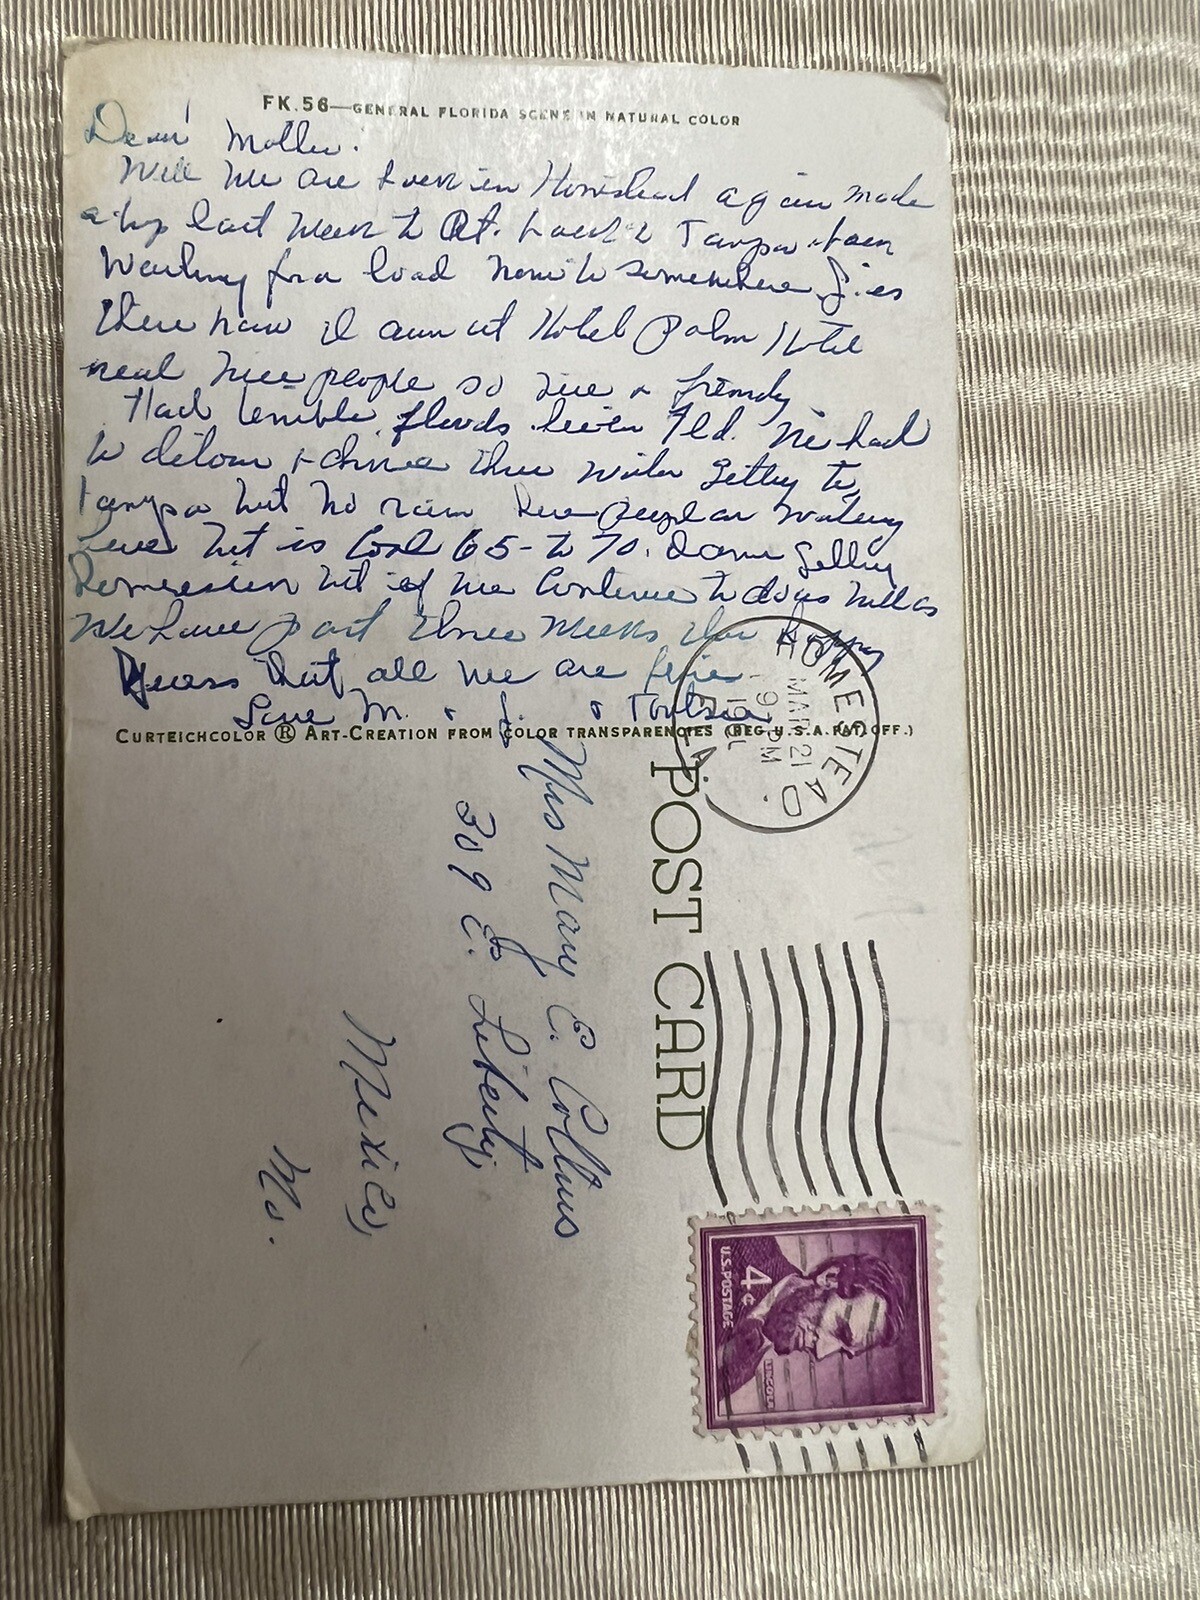 FK.56—GENERAL FLORIDA SCENE IN NATURAL COLOR
Dear Mother:
Well we are back in Homestead again made
a trip last week to Ct. back to Tampa been
Waiting for a load now to somewhere J. is
there now I am at Hotel Palm Hotel
real nice people so nice & friendly
Had terrible floods here in Fld. We had
to detour & drive thru water getting to
Tampa but no rain
here but is Cool 65-to 70. getting
but if we continue to do as well as
We have past three weeks
Guess that all we are fine.
Love M. & J. & Tootsie
CURTEICHCOLOR ® ART-CREATION FROM COLOR TRANSPARENCIES (REG. U.S.A. PAT. OFF.)
POST CARD
HOMESTEAD.
FLA.
MAR 21
9 PM
19
Mrs Mary E. Collins
309 E. Liberty
Mexico,
Mo.
U.S. POSTAGE
4¢
LINCOLN